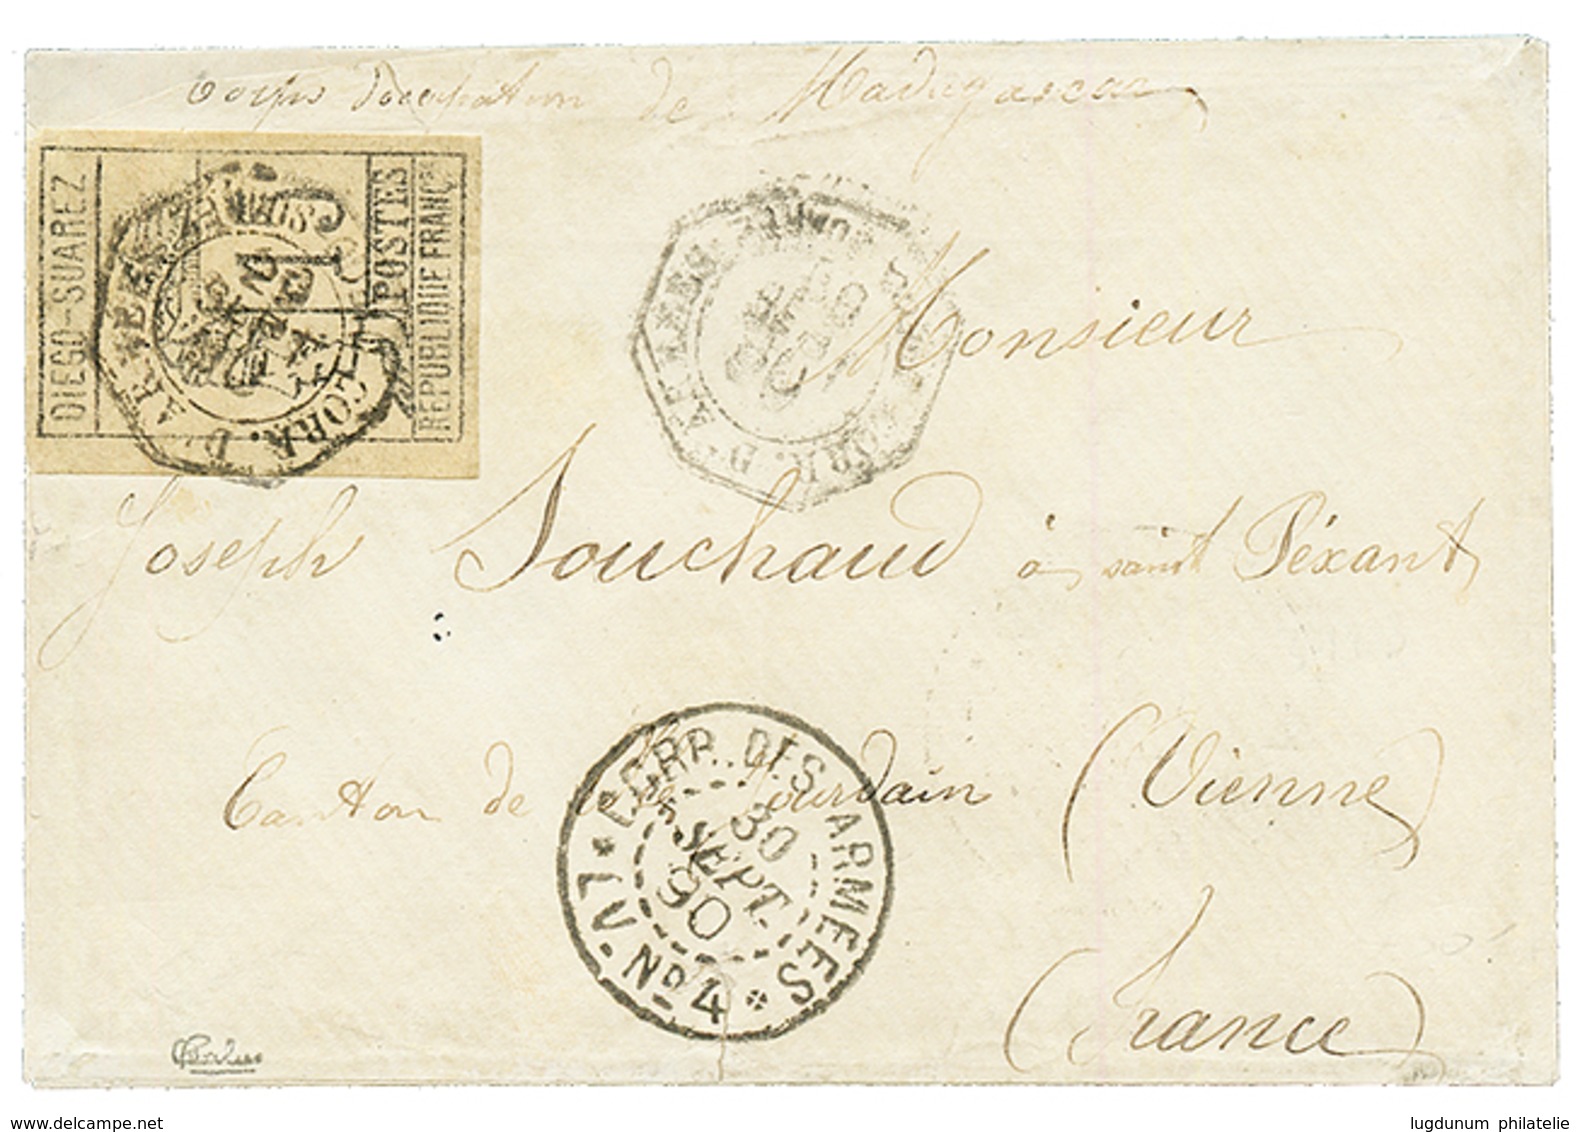 Corps d'occupation de Madagascar
DIEGO-SUAREZ
POSTES
REPUBLIQUE FRANÇSE
CORR. D'ARMEES
CORR. D'ARMEES
Monsieur
Joseph Souchaud à saint Péxant
Canton de l'Isle Jourdain (Vienne)
(France)
CORR. DES ARMEES
LV. No 4
30
SEPT.
90
www.delcampe.net
lugdunum philatelie